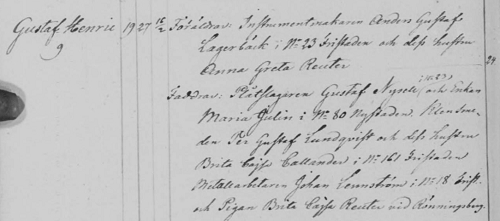 Gustaf Henric 19 27 12/2 Föräldrar: Instrumentmakaren Anders Gustaf
9 Lagerbäck i No 23 Fristaden och dess hustru
Anna Greta Reuter
24
Faddrar: Plåtslagaren Gustaf Nysell, och Enkan
Maria Julin i No 80 Nystaden. Klensme-
den Per Gustaf Lundqvist och dess hustru
Brita Cajsa Callander i No 161 Fristaden
Metallarbetaren Johan Lennström i No 18 Frist.
och Pigan Brita Cajsa Reuter vid Rönningsberg.